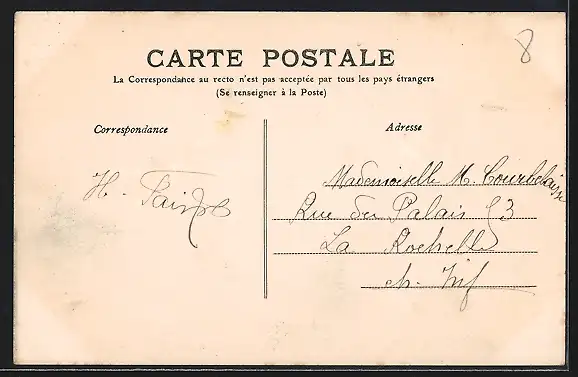 CARTE POSTALE
La Correspondance au recto n'est pas acceptée par tous les pays étrangers
(Se renseigner à la Poste)
8
Correspondance
Adresse
H.
Mademoiselle M. Courbelaisse
Rue du Palais 53
La Rochelle
ch. Inf